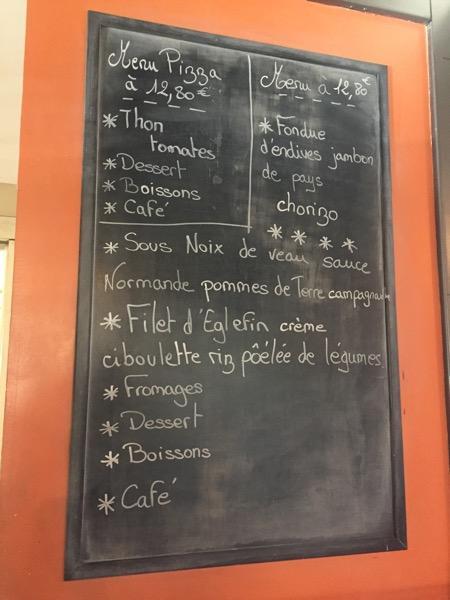 Menu Pizza
à 12,80 €
* Thon
tomates
* Dessert
* Boissons
* Café
Menu à 12,80 €
* Fondue
d'endives jambon
de pays
chorizo
* * * *
* Sous Noix de veau sauce
Normande pommes de Terre campagnarde
* Filet d'Eglefin crème
ciboulette riz pôêlée de légumes
* Fromages
* Dessert
* Boissons
* Café